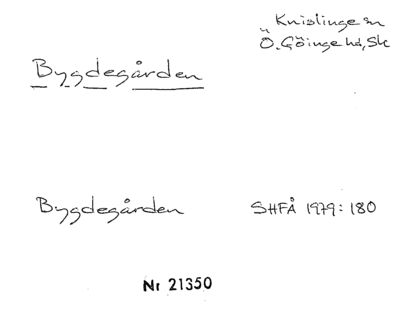 Knislinge sn
Ö. Göinge hd, Sk
Bygdegården
Bygdegården SHFÅ 1979: 180
Nr 21350